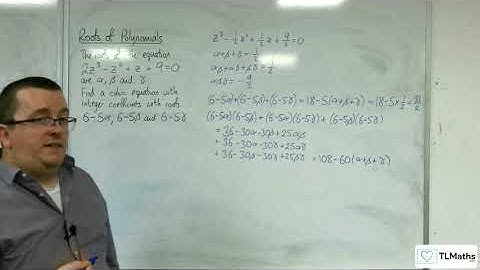 Roots of Polynomials
The roots of the equation
2z³ - z² + z + 9 = 0
are α, β and γ
Find a cubic equation with
integer coefficients with roots
6-5α, 6-5β and 6-5γ
z³ - ½z² + ½z + 9/2 = 0
α+β+γ = ½
αβ+αγ+βγ = ½
αβγ = -9/2
(6-5α)+(6-5β)+(6-5γ) = 18-5(α+β+γ) = 18-5×½ = 31/2
(6-5α)(6-5β) + (6-5α)(6-5γ) + (6-5β)(6-5γ)
= 36-30α-30β+25αβ
+ 36-30α-30γ+25αγ
+ 36-30β-30γ+25βγ = 108-60(α+β+γ)
TLMaths